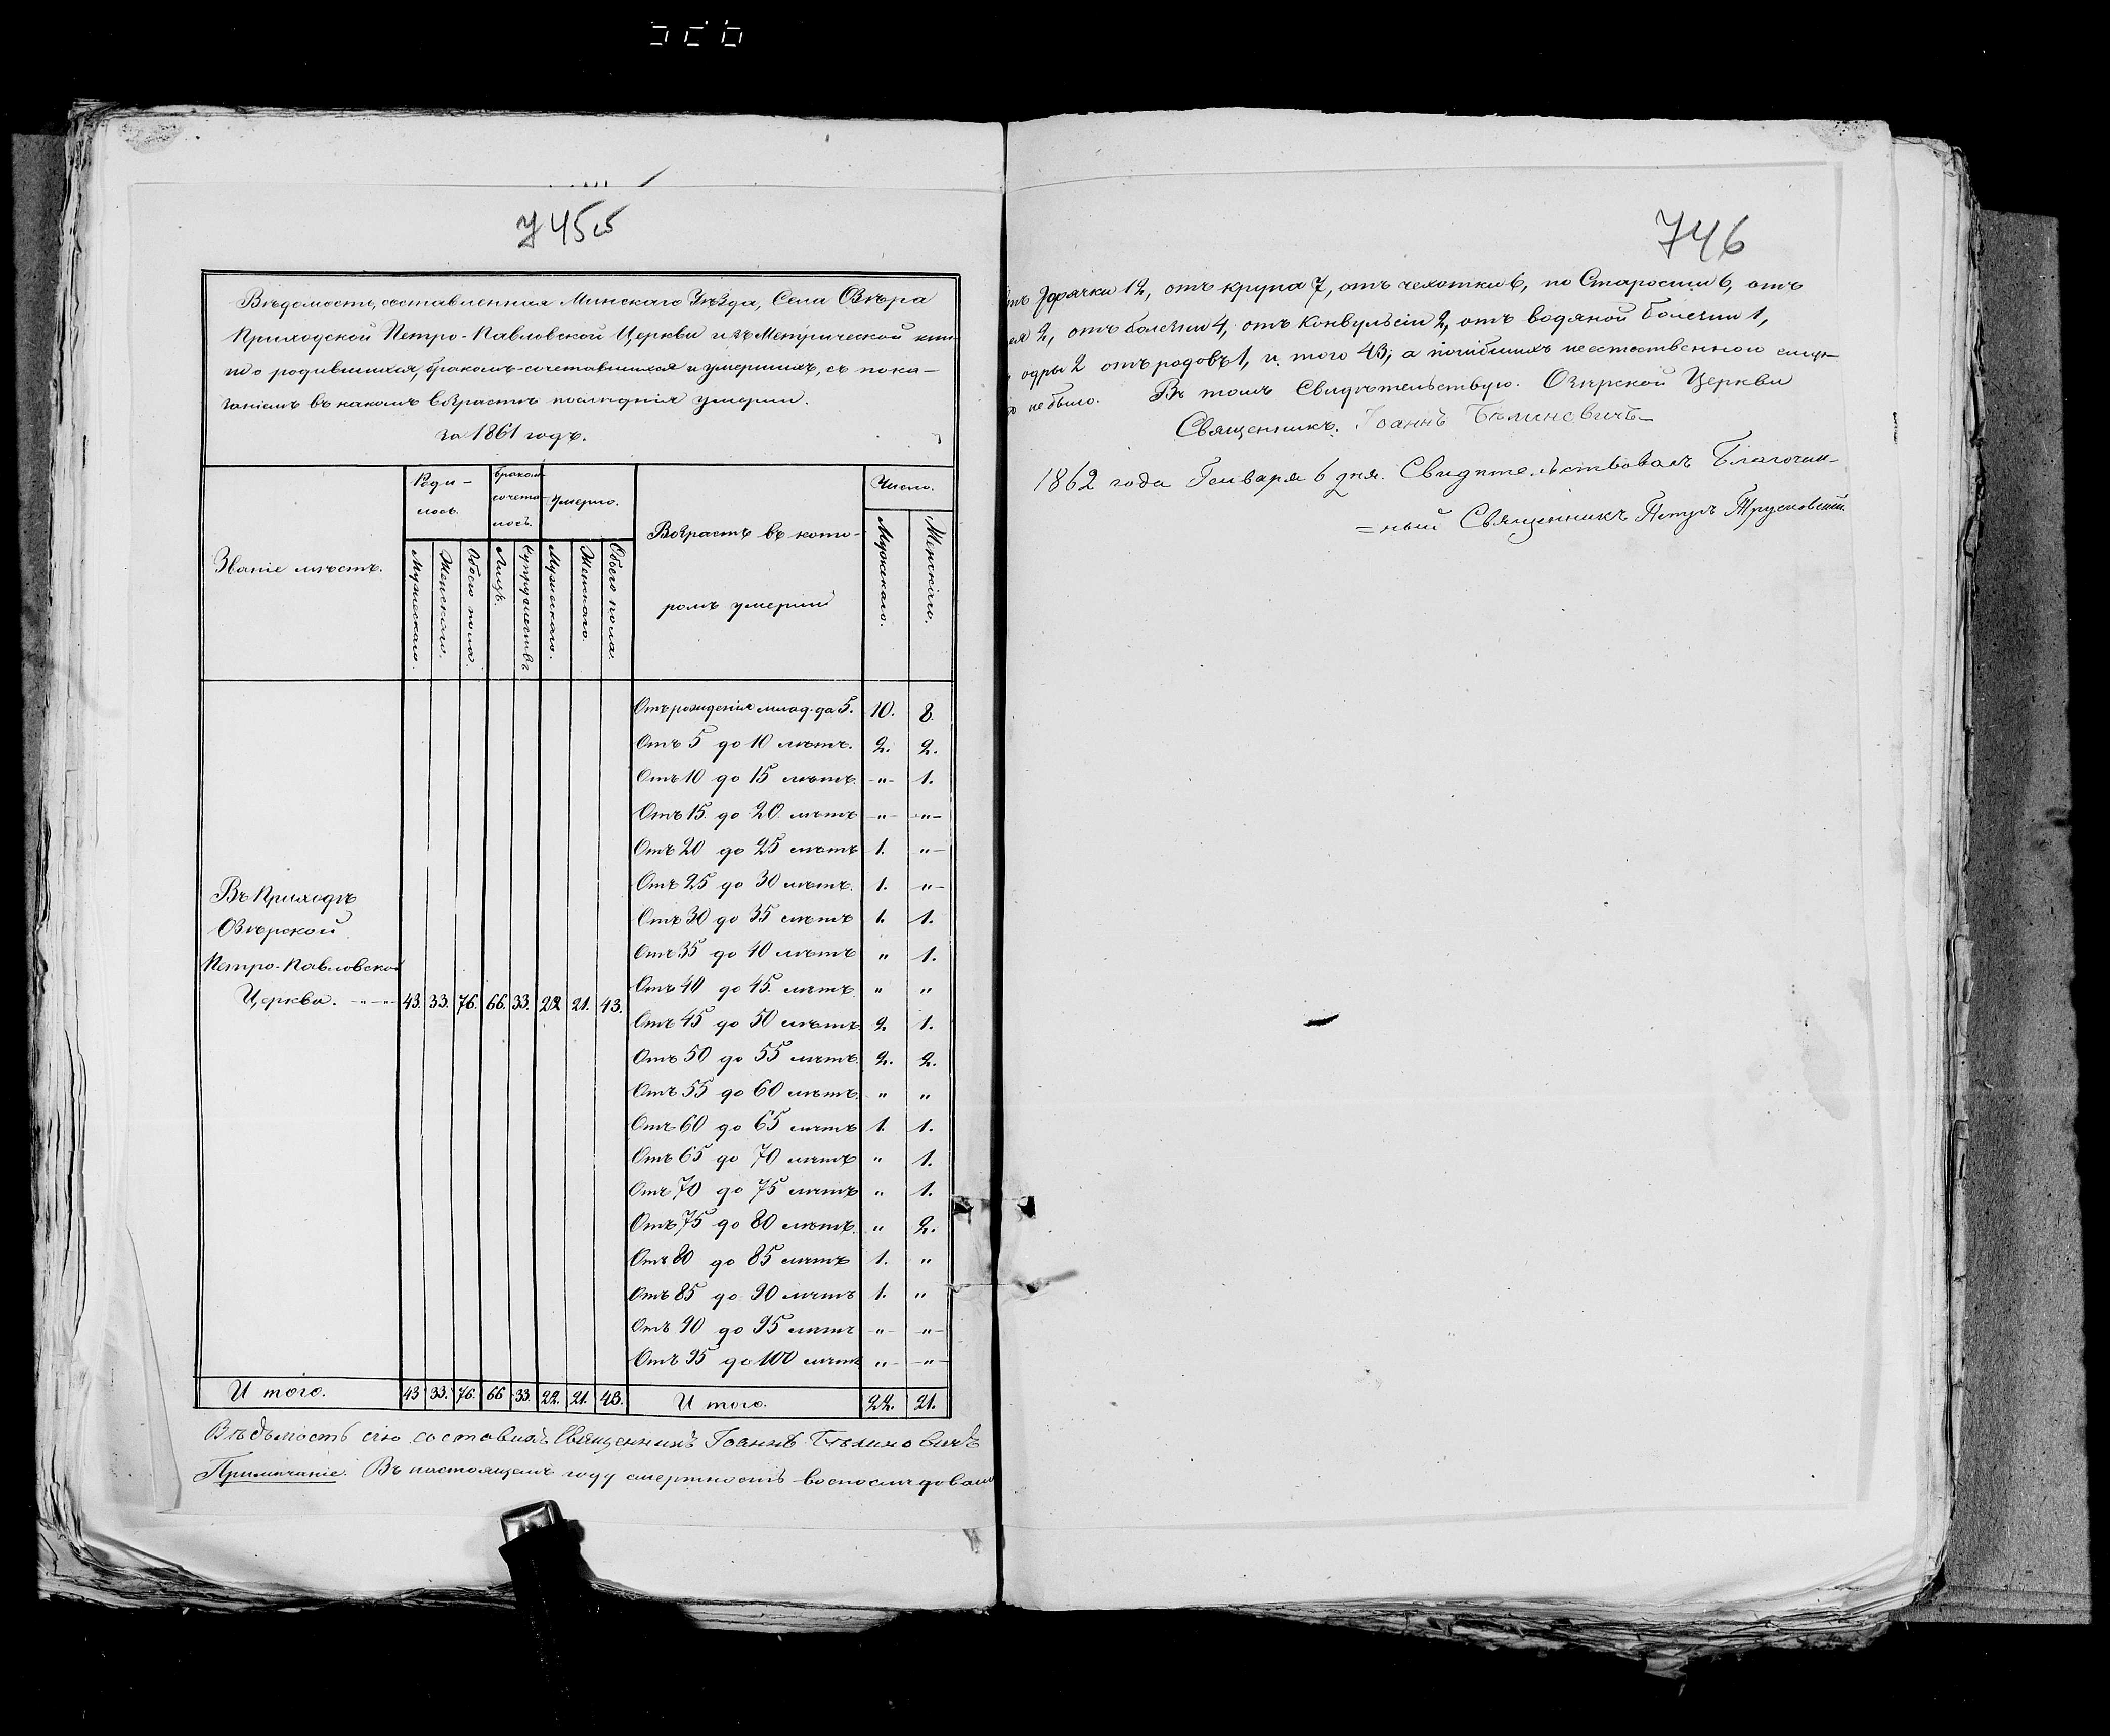 745об
Вѣдомость, составленная Минскаго Уѣзда, Села Озѣра
Приходской Петро-Павловской Церкви изъ Метрической кни
ги о родившихся, бракомъ-сочетавшихся и умершихъ, съ пока-
заніемъ въ какомъ возрастѣ послѣднія умерли.
за 1861 годъ.
Званіе мѣстъ.
Роди-
лось.
Бракомъ
сочета-
лось.
Умерло.
Возрастъ въ кото-
ромъ умерли
Число.
Мужескаго.
Женскаго.
Обоего пола.
Лицъ.
Супружествъ
Мужескаго.
Женскаго.
Обоего пола.
Мужескаго.
Женскаго.
Отъ рожденія млад. до 5. 10. 8.
Отъ 5 до 10 лѣтъ. 2. 2.
Отъ 10 до 15 лѣтъ. -"- 1.
Отъ 15. до 20. лѣтъ -"- -"-
Отъ 20 до 25 лѣтъ 1. "-
Отъ 25 до 30 лѣтъ. 1. "-
Отъ 30 до 35 лѣтъ 1. 1.
Отъ 35 до 40 лѣтъ " 1.
Отъ 40 до 45. лѣтъ. " "
Отъ 45 до 50 лѣтъ. 2. 1.
Отъ 50 до 55 лѣтъ. 2. 2.
Отъ 55 до 60 лѣтъ. " "
Отъ 60 до 65 лѣтъ 1. 1.
Отъ 65 до 70 лѣтъ " 1.
Отъ 70 до 75 лѣтъ " 1.
Отъ 75 до 80 лѣтъ. " 2.
Отъ 80 до 85 лѣтъ 1. "
Отъ 85 до 90 лѣтъ 1. "
Отъ 90 до 95 лѣтъ "- "-
Отъ 95 до 100 лѣтъ "- -"-
Въ Приходѣ
Озѣрской
Петро-Павловской
Церкви. -"-"- 43. 33. 76. 66. 33. 22 21. 43.
И того. 43 33. 76. 66 33. 22. 21. 43. И того. 22. 21.
Вѣдомость сію составилъ Священникъ Іоаннъ Бѣлиновичъ
Примѣчаніе. Въ настоящемъ году смертность воспослѣдовала
746
Горячки 12, отъ крупа 7, отъ чехотки 6, по Старости 6, отъ
2, отъ болезни 4, отъ Конвульсіи 2, отъ водяной болезни 1,
одры 2 отъ родовъ 1, и того 43; а погибшихъ неестественною случ-
не было. Въ томъ Свидѣтельствую. Озерской Церкви
Священникъ. Іоаннъ Бѣлиневичъ
1862 года Генваря 6 дня. Свидѣтельствовалъ Благочин-
=ный Священникъ Петръ Трусковскій.